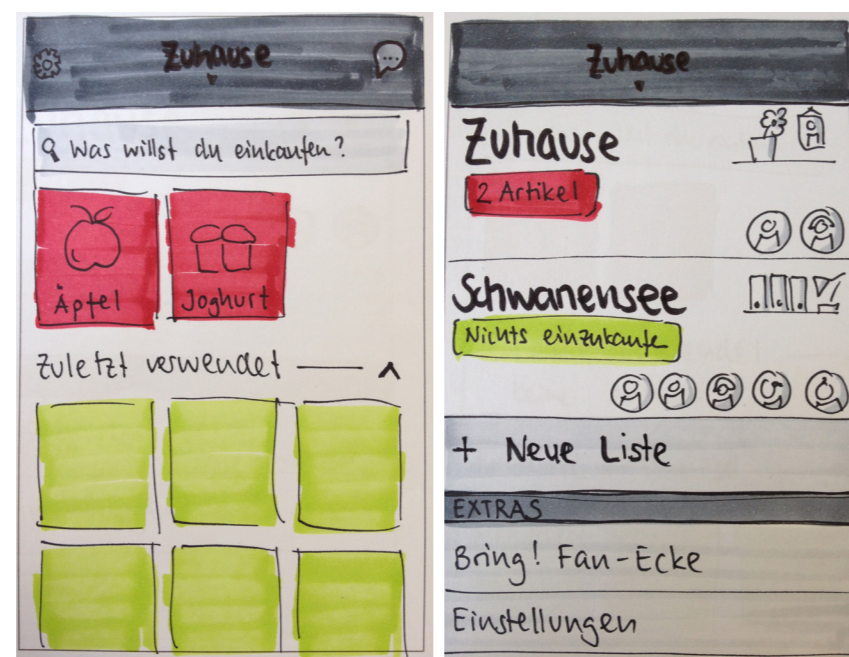 Zuhause
Was willst du einkaufen?
Äpfel
Joghurt
Zuletzt verwendet
Zuhause
Zuhause
2 Artikel
Schwanensee
Nichts einzukaufe
+ Neue Liste
EXTRAS
Bring! Fan-Ecke
Einstellungen